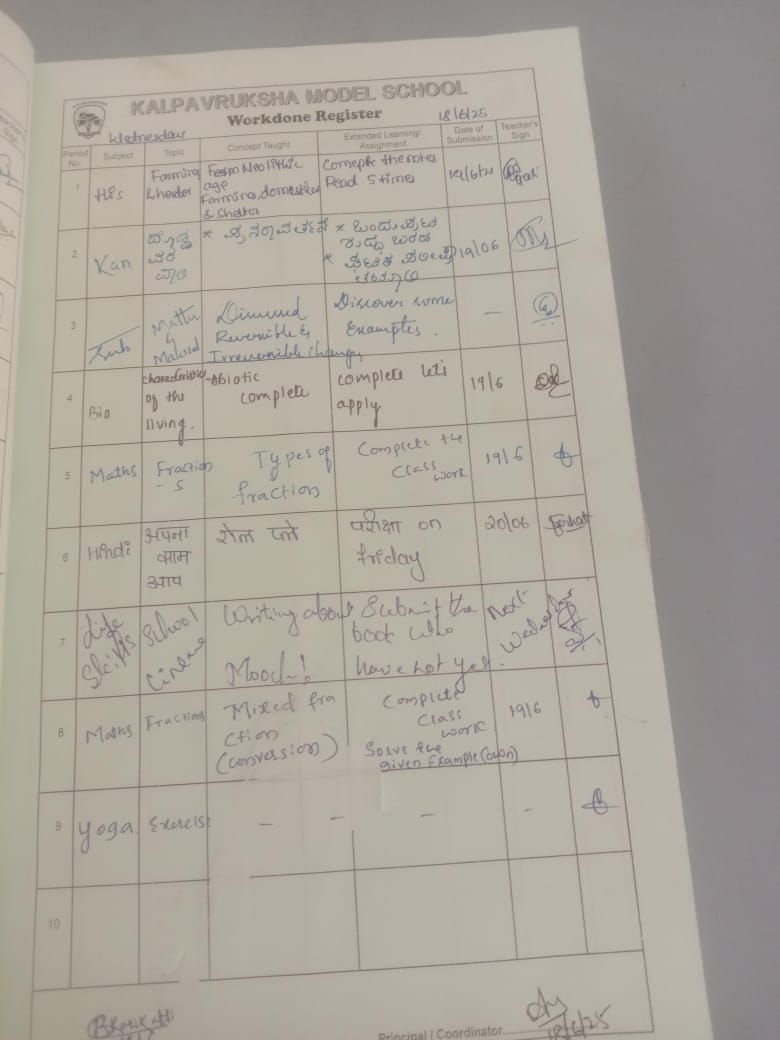 KALPAVRUKSHA MODEL SCHOOL
Workdone Register
Wednesday
18/6/25
Period No. Subject Topic Concept Taught Extended Learning/ Assignment Date of Submission Teacher's Sign
1 His Farming & herder From Neolithic age Farming, & Shelter Complete the notes Read 5 times
2 Kan 19/06
3 Matter & Material Discussed Reversible & Irreversible change Discover some Examples. —
4 Bio characteristics of the living. Abiotic complete complete let's apply 19/6
5 Maths Fraction - s Types of fraction Complete the Class work 19/6
6 Hindi अपना काम आप रोल प्ले परीक्षा on friday 20/06
7 Life Skills School Cinema Writing about Mood-! Submit the book who have not yet. Next Wednesday
8 Maths Fractions Mixed fra ction (conversion) Complete Class work Solve the given Example (own) 19/6
9 Yoga Exercise — - — -
10
Principal / Coordinator
18/6/25